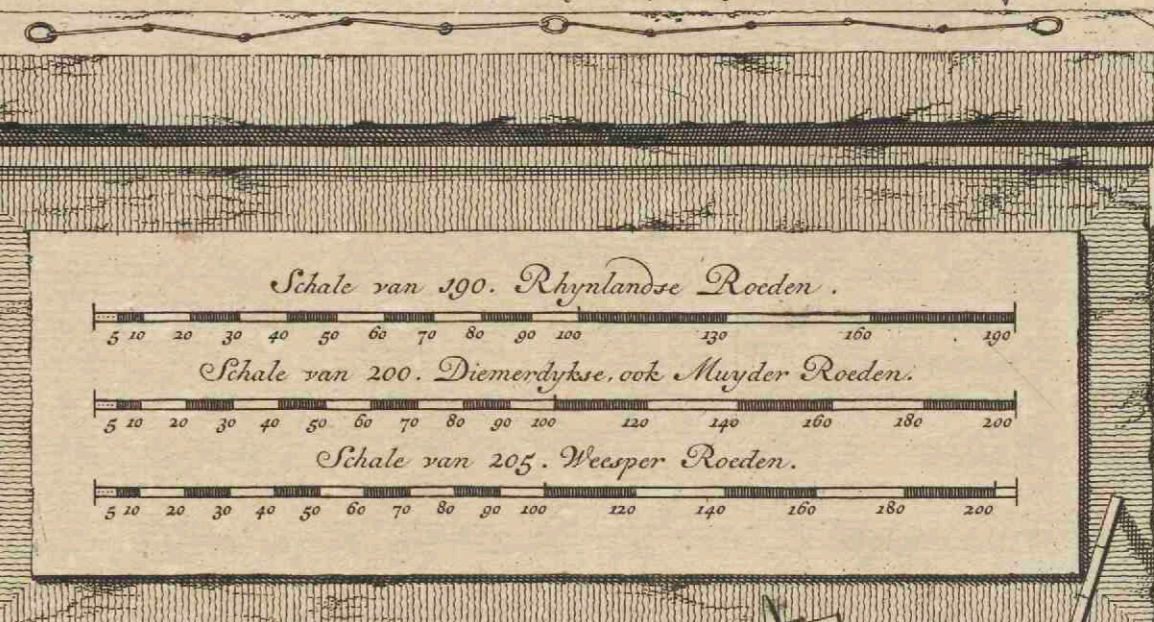 Schale van 190. Rhynlandse Roeden.
5 10 20 30 40 50 60 70 80 90 100 130 160 190
Schale van 200. Diemerdykse, ook Muyder Roeden.
5 10 20 30 40 50 60 70 80 90 100 120 140 160 180 200
Schale van 205. Weesper Roeden.
5 10 20 30 40 50 60 70 80 90 100 120 140 160 180 200